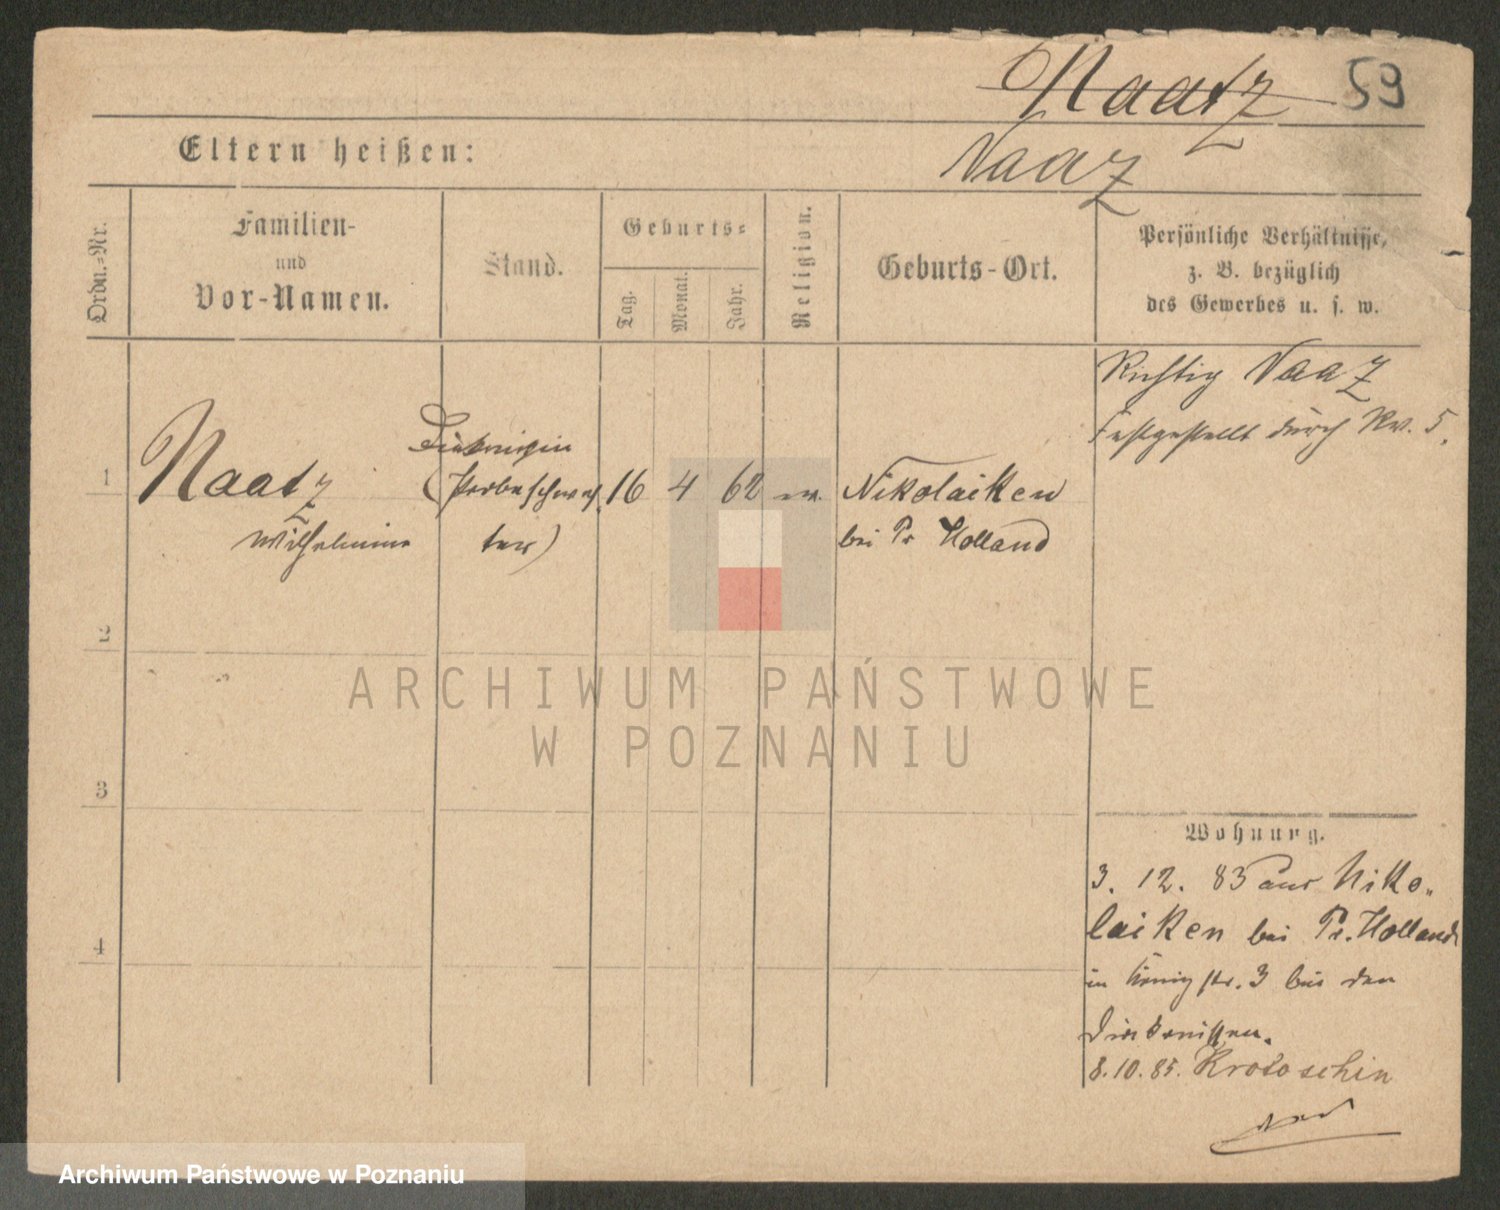 Naatz 59
Eltern heißen:
Naaz
Ordn.-Nr.
Familien-
und
Vor-Namen.
Stand.
Geburts-
Tag.
Monat.
Jahr.
Religion.
Geburts-Ort.
Persönliche Verhältnisse,
z. B. bezüglich
des Gewerbes u. s. w.
Richtig Naaz
Festgestellt durch Rv. 5.
1
Naatz
Wilhelmine
Diakonissin
(Probeschwes
ter)
16 4 62 ev.
Nikolaiken
bei Pr Holland
2
3
4
Wohnung.
3. 12. 83 aus Niko-
laiken bei Pr. Holland
in Königstr. 3 bei den
Diakonissen.
8.10.85. Krotoschin
ARCHIWUM PAŃSTWOWE
W POZNANIU
Archiwum Państwowe w Poznaniu